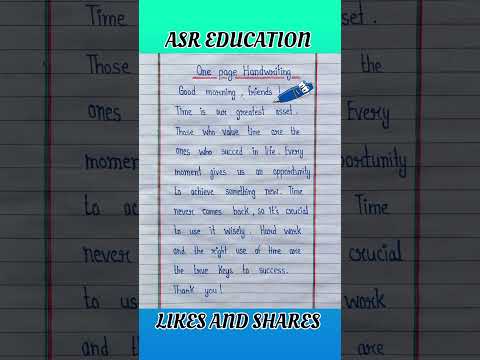 ASR EDUCATION
One page Handwriting
Good morning, friends!
Time is our greatest asset.
Those who value time are the
ones who succed in life. Every
moment gives us an opportunity
to achieve something new. Time
never comes back, so it's crucial
to use it wisely. Hard work
and the right use of time are
the true keys to success.
Thank you!
LIKES AND SHARES
Time
Those
ones
moment
to ac
never
to us
and th
asset.
the
Every
portunity
Time
crucial
work
are